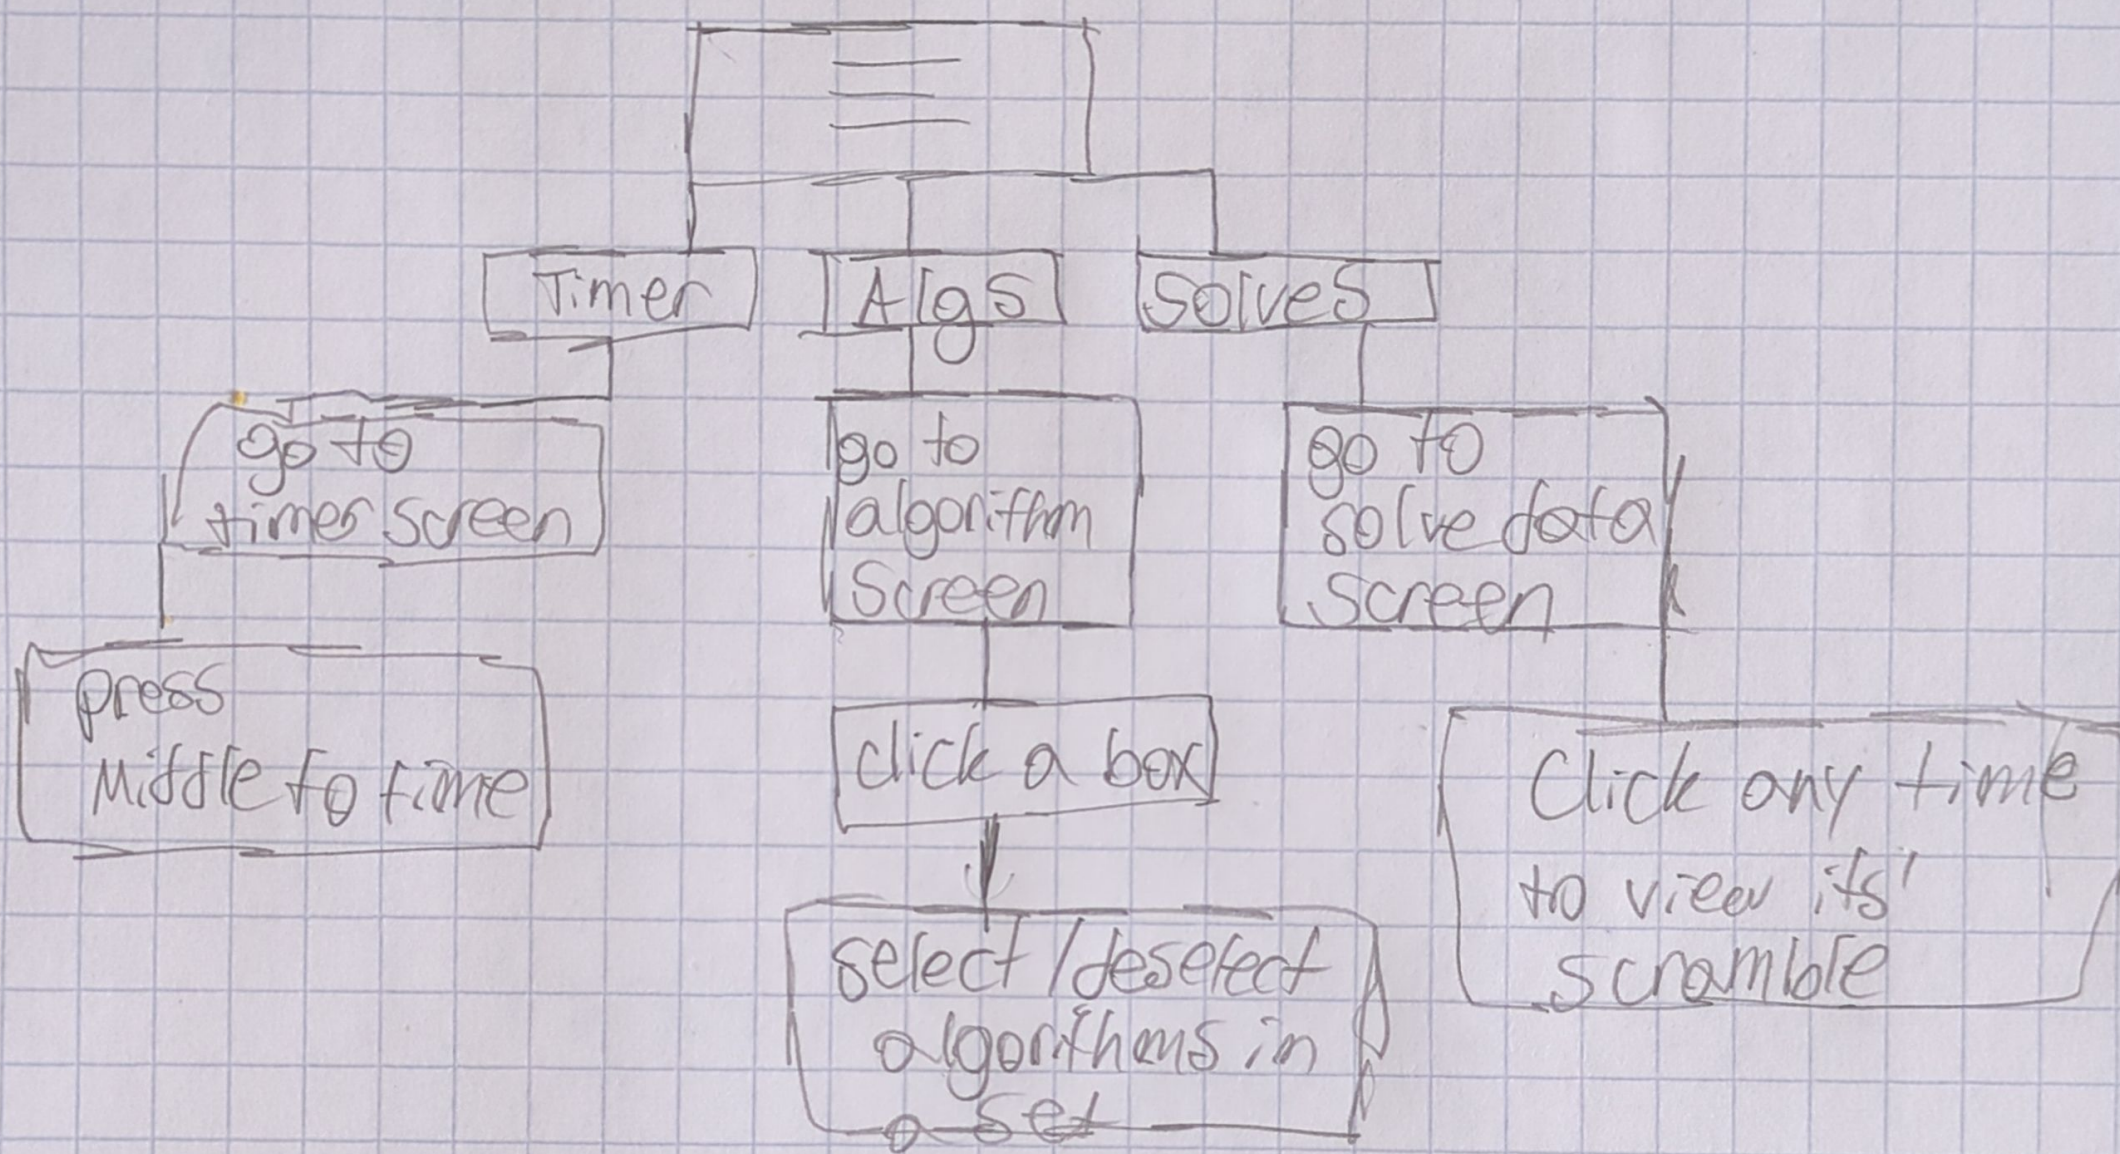 Timer
Algs
Solves
go to
timer screen
go to
algorithm
screen
go to
solve data
screen
press
Middle to time
click a box
Click any time
to view its'
scramble
select/deselect
algorithms in
a set